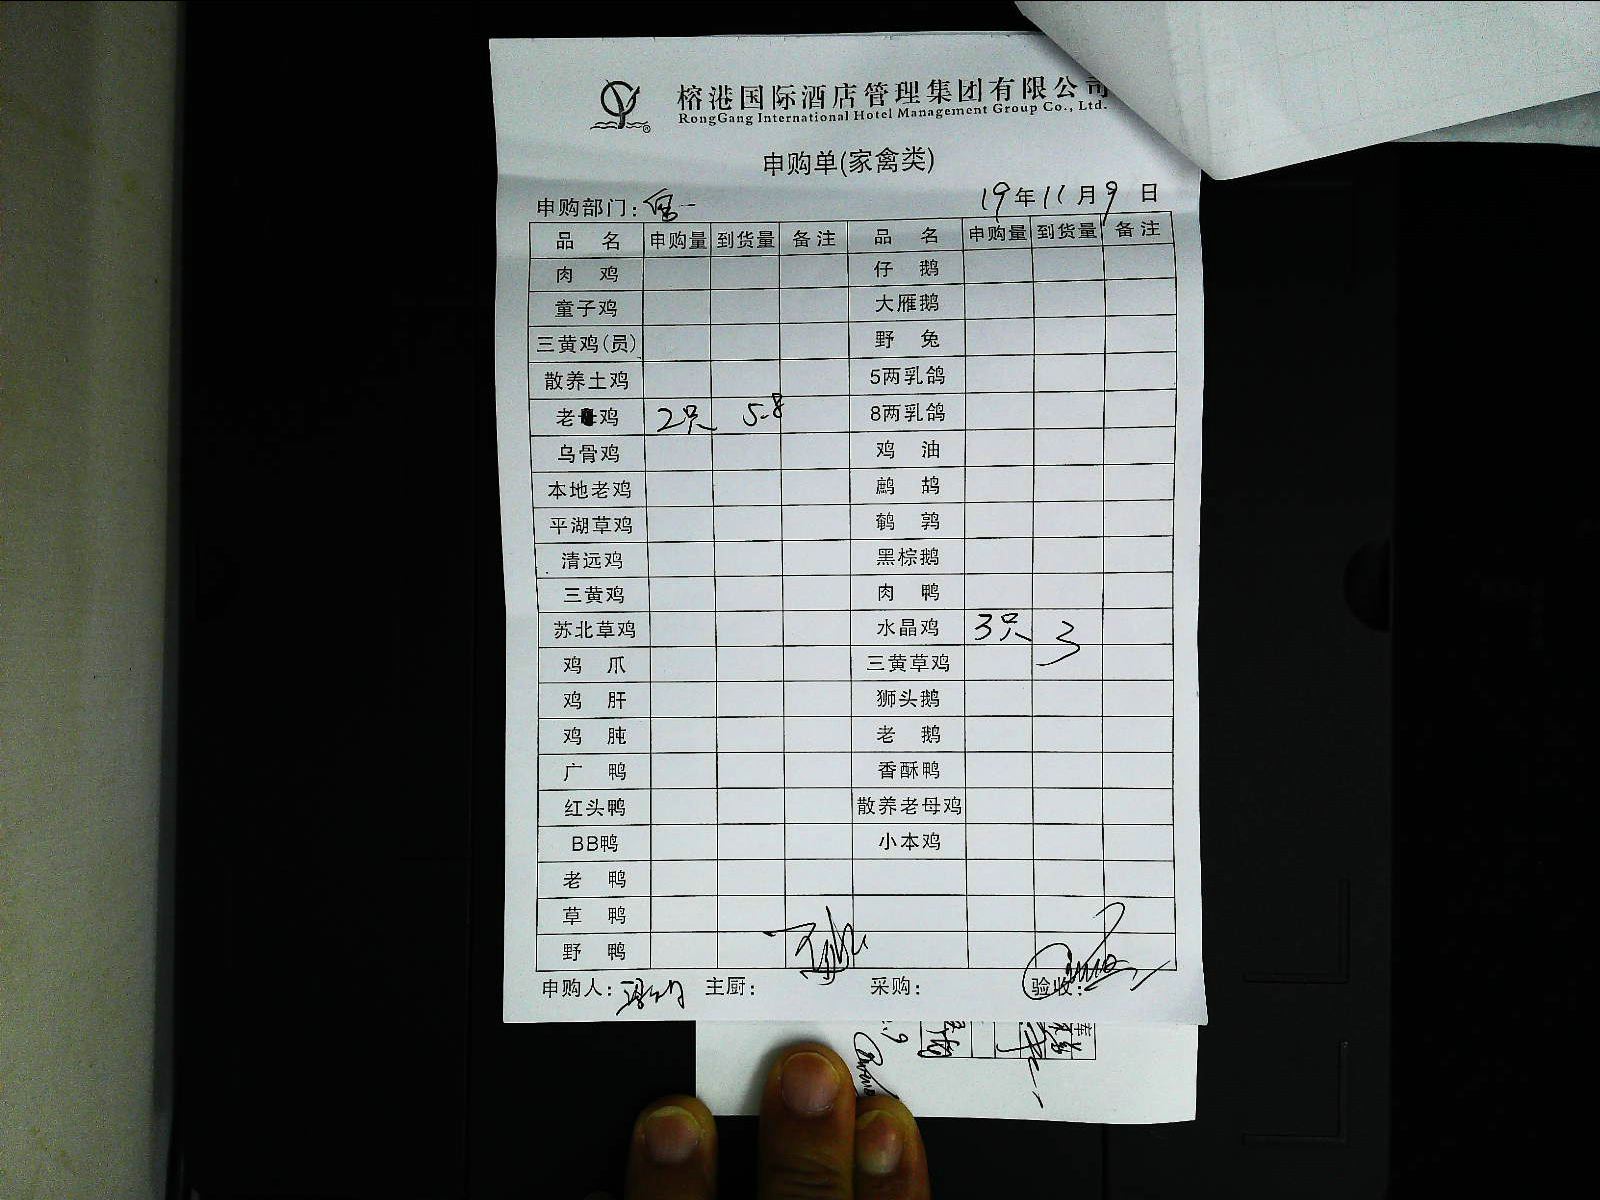 榕港国际酒店管理集团有限公司
RongGang International Hotel Management Group Co., Ltd.
申购单(家禽类)
申购部门: 19年11月9日
品 名 申购量 到货量 备注 品 名 申购量 到货量 备注
肉 鸡 仔 鹅
童子鸡 大雁鹅
三黄鸡(员) 野 兔
散养土鸡 5两乳鸽
老 鸡 2只 5.8 8两乳鸽
乌骨鸡 鸡 油
本地老鸡 鹧 鸪
平湖草鸡 鹌 鹑
清远鸡 黑棕鹅
三黄鸡 肉 鸭
苏北草鸡 水晶鸡 3只 3
鸡 爪 三黄草鸡
鸡 肝 狮头鹅
鸡 肫 老 鹅
广 鸭 香酥鸭
红头鸭 散养老母鸡
BB鸭 小本鸡
老 鸭
草 鸭
野 鸭
申购人: 主厨: 采购: 验收: